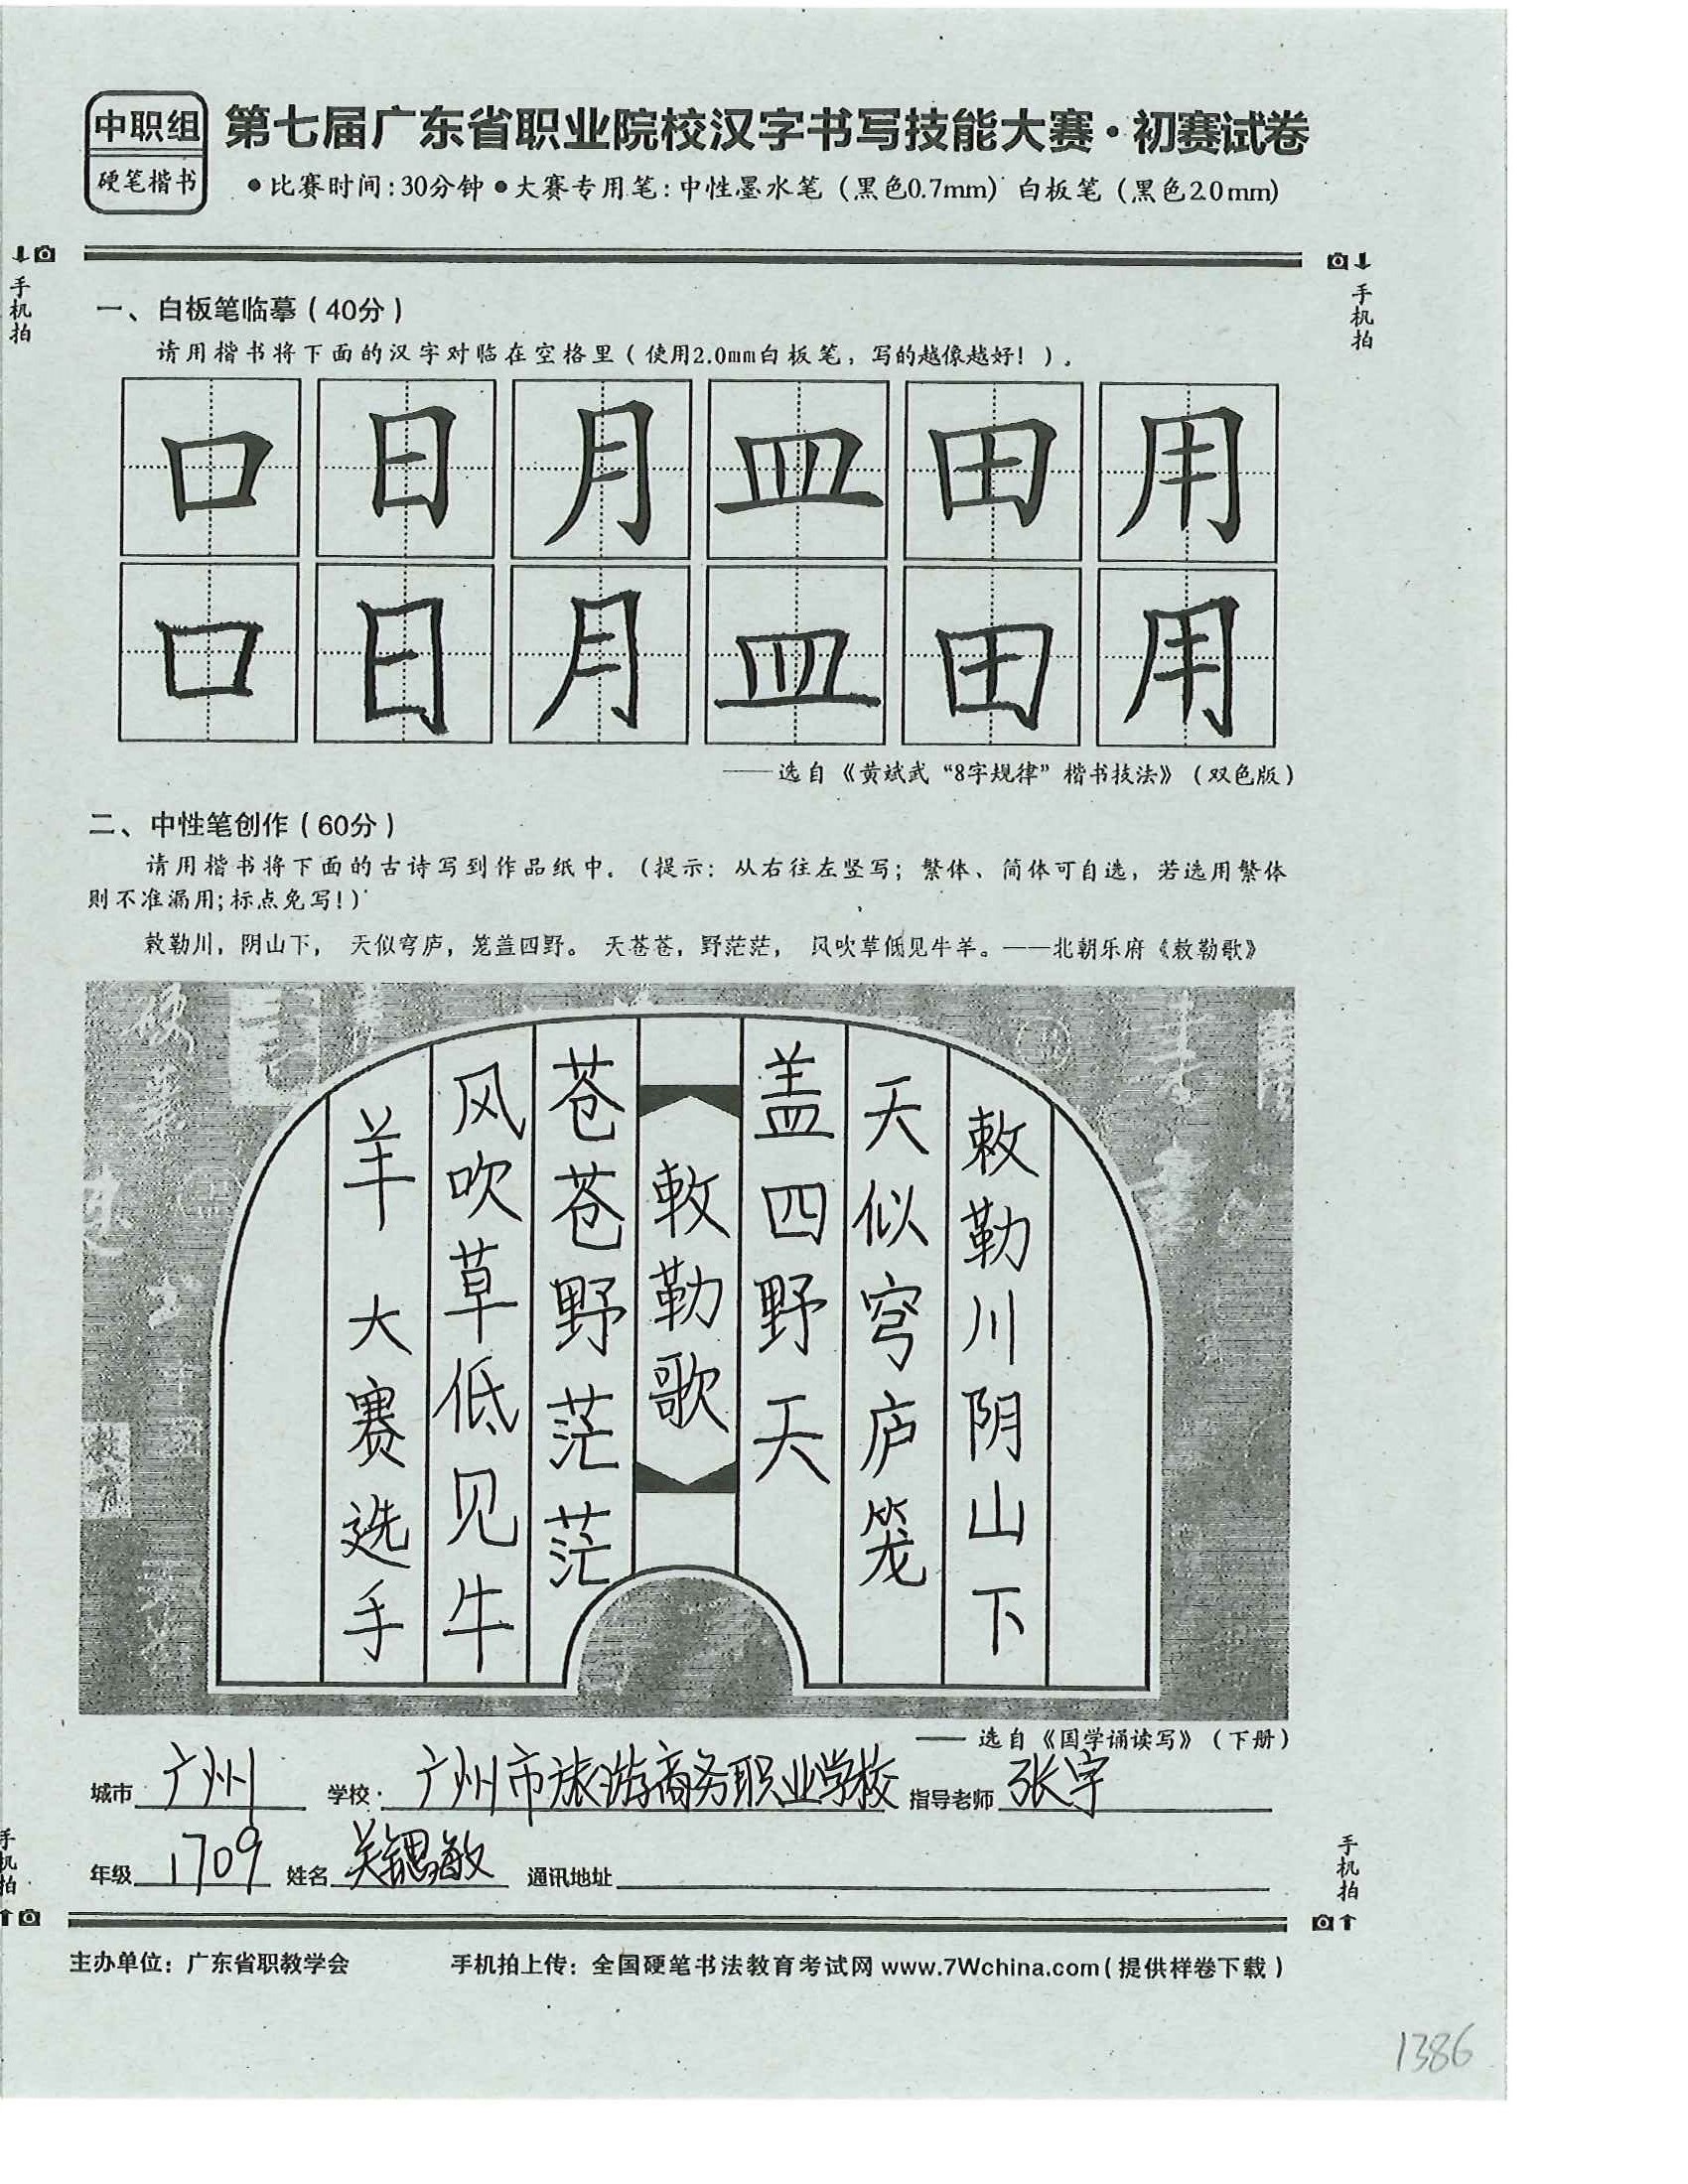 中职组
硬笔楷书
第七届广东省职业院校汉字书写技能大赛·初赛试卷
●比赛时间:30分钟●大赛专用笔:中性墨水笔（黑色0.7mm）白板笔（黑色2.0mm）
手机拍
手机拍
一、白板笔临摹（40分）
请用楷书将下面的汉字对临在空格里（使用2.0mm白板笔，写的越像越好！）。
口日月皿田用
口日月皿田用
——选自《黄斌武“8字规律”楷书技法》（双色版）
二、中性笔创作（60分）
请用楷书将下面的古诗写到作品纸中。（提示：从右往左竖写；繁体、简体可自选，若选用繁体
则不准漏用;标点免写!）
敕勒川，阴山下， 天似穹庐，笼盖四野。 天苍苍，野茫茫， 风吹草低见牛羊。——北朝乐府《敕勒歌》
敕勒川阴山下
天似穹庐笼
盖四野天
敕勒歌
苍苍野茫茫
风吹草低见牛
羊 大赛选手
—— 选自《国学诵读写》（下册）
城市 广州 学校: 广州市旅游商务职业学校 指导老师 张宇
年级 1709 姓名 敏 通讯地址
手机拍
手机拍
主办单位：广东省职教学会 手机拍上传：全国硬笔书法教育考试网 www.7Wchina.com（提供样卷下载）
1386